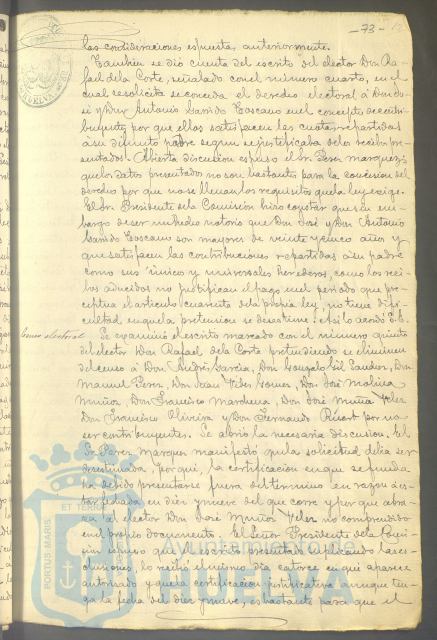 -73-
las consideraciones espuesta anteriormente.
Tambien se dió cuenta del escrito del elector Don Ra-
fael de la Corte, señalado con el número cuarto, en el
cual se solicita se conceda el derecho electoral á Don Jo-
sé y Don Antonio Garrido Toscano en el concepto de contri-
buyentes, por que ellos satisfacen las cuotas repartidas
á su difunto padre segun se justificaba de los recibos pre-
sentados. Abierta discusion espuso el Sr. Perez Marquez
que los datos presentados no son bastantes para la concesion del
derecho por que no se llenan los requisitos que la ley exige.
El Sr. Presidente de la Comision hizo constar que sin em-
bargo de ser un hecho notorio que Don José y Don Antonio
Garrido Toscano son mayores de veinte y cinco años y
que satisfacen las contribuciones repartidas á su padre
como sus únicos y universales herederos, como los reci-
bos aducidos no justifican el pago en el periodo que pre-
ceptua el articulo cuarenta de la propia ley, no tiene difi-
cultad en que la pretension se desestime. Asi lo acordó
Censo electoral
Se examinó el escrito marcado con el número quinto
del elector Don Rafael de la Corte pretendiendo se eliminen
del censo á Don Andrés Garcia, Don Gonzalo Gil Sanchez, Don
Manuel Perez, Don Juan Velez Gomez, Don José Molina
Muñoz, Don Francisco Marchena, Don José Muñoz Velez
Don Francisco Oliveira y Don Fernando por no
ser contribuyentes. Se abrió la necesaria discusion. El
Sr. Perez Marquez manifestó que la solicitud debia ser
desestimada, porque la certificacion en que se funda
ha debido presentarse fuera del termino en razon á es-
tar fechada en diez y nueve del que corre y por que
el elector Don José Muñoz Velez no comprendido
en el propio documento. El Señor Presidente de la Comi-
sion espuso que el escrito presentado esplicando las es-
clusiones, lo recibió el mismo dia catorce en que aparece
autorizado y que la certificacion justificativa aunque ten-
ga la fecha del diez y nueve, es bastante para que el
PORTUS MARIS
ET TERRAE
Ayuntamiento de
HUELVA